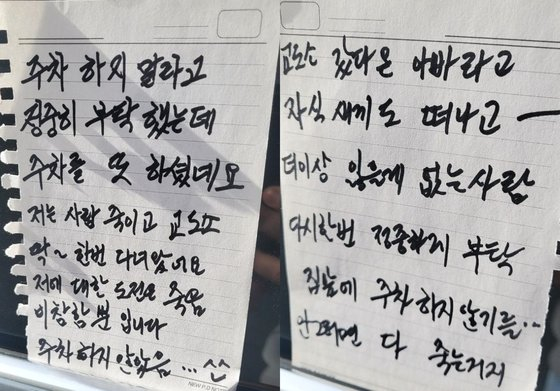 주차 하지 말라고
정중히 부탁 했는데
주차를 또 하셨네요
저는 사람 죽이고 교도소
딱~ 한번 다녀왔어요
저에 대한 도전은 죽음
비참함 뿐 입니다
주차 하지 안았음 ...
교도소 갔다온 아빠라고
자식 새끼도 떠나고
더이상 잃을게 없는 사람
다시한번 정중하게 부탁
집앞에 주차 하지 않기를..
안그러면 다 죽는거지